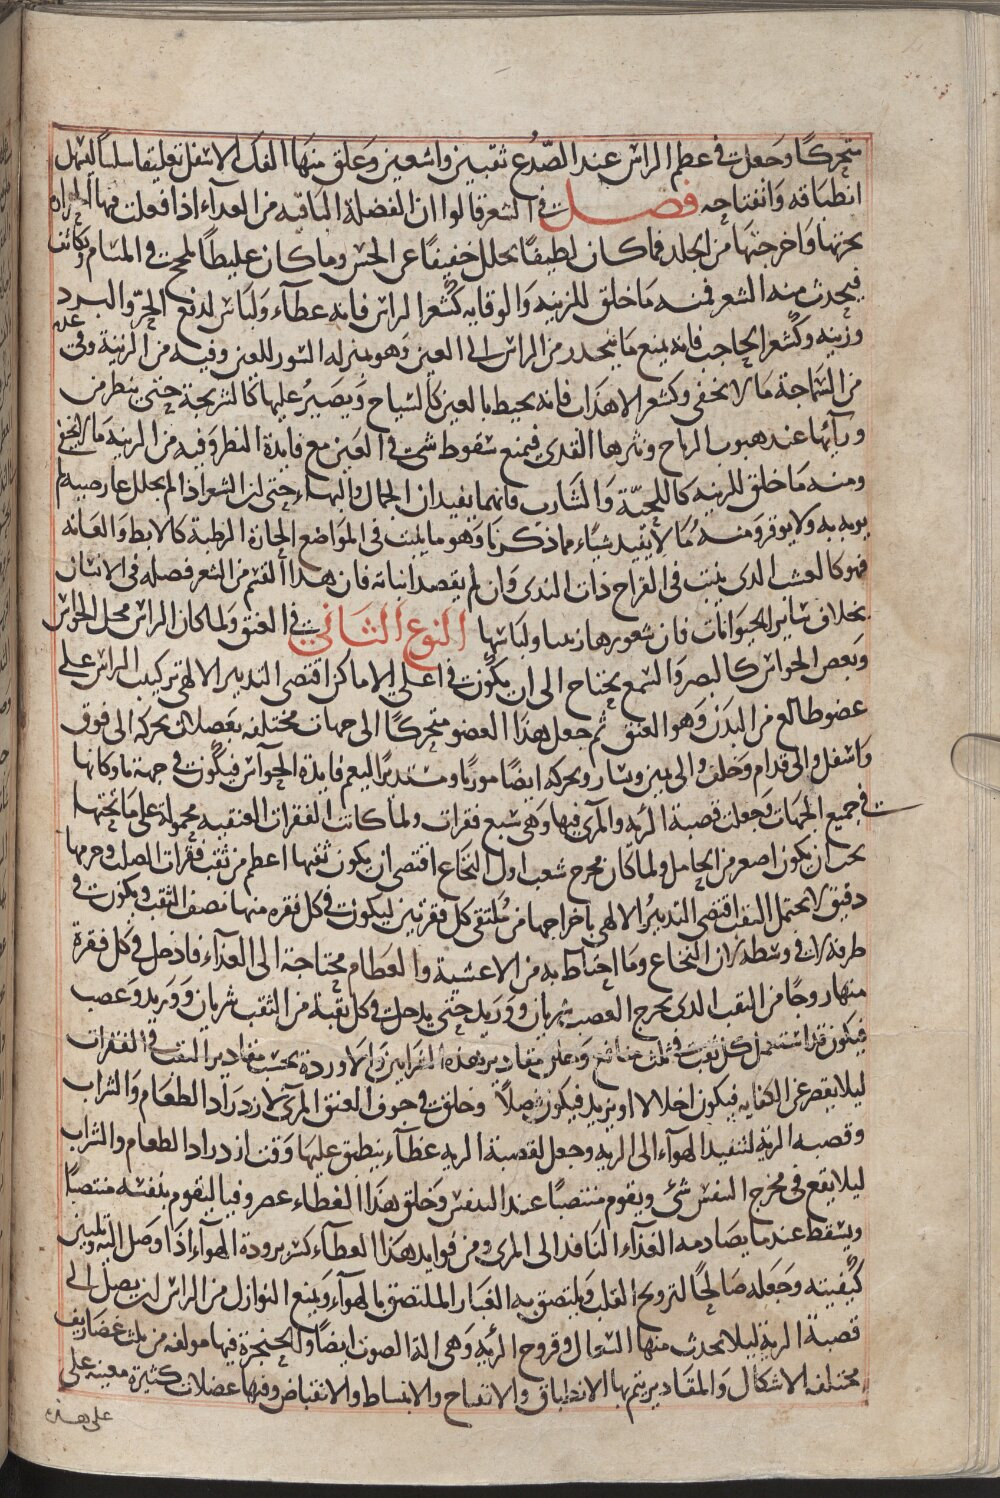 متحركًا وجعلت في عظم الراس عند الصدغ ثقبين واسعين وعلق منها الفك الاسفل تعليقا سلسا ليسهل
انطباقه وانفتاحه فصل في الشعر قالوا ان الفضلة الباقيه من الغدآء اذا فعلت فيها الحرارة
بحرتها واخرجتها من الجلد فما كان لطيفًا تحلل خفيفًا عن الحس وما كان غليظًا لحج في المسام وتكاثف
فيحدث منه الشعر فمنه ما خلق للزينه والوقايه كشعر الراس فانه غطآء ولباس لدفع الحر والبرد
وزينه وكشعر الحاجب فانه يمنع ما ينحدر من الراس الى العين وهو بمنزله السور للعين وفيه من الزينة وفي عدمه
من السماجة ما لا يخفى وكشعر الاهداب فانه يحيط بالعين كالسياج ويصير عليها كالشريجة حتى ينظر من
ورآئها عند هبوب الرياح ونثرها القدى فيمنع سقوط شئ في العين مع فايدة النظر وفيه من الزينه ما لا يخفى
ومنه ما خلق للزينه كاللحية والشارب فانهما يفيدان الجمال والبهاء حتى ان الشعر اذا لم يحلل عارضيه لم
يوبه به ولا يوقر ومنه ما لا يفيد شيًاء مما ذكرنا وهو ما ينبت في المواضع الحارة الرطبة كالابط والعانه
فهو كالعشب الدى ينبت في القراح ذات الندى وان لم يقصد انباته فان هدا القسم من الشعر فصله في الانسان
بخلاف ساير الحيوانات فان شعورها زينتها ولباسها النوع الثاني في العنق ولما كان الراس محل الحواس
وبعض الحواس كالبصر والسمع يحتاج الى ان يكون في اعلى الاماكن اقتضى التدبير الالهي تركيب الراس على
عضو طالع من البدن وهو العنق ثم جعل هذا العضو متحركًا الى جهات مختلفه بعضلات تحركه الى فوق
واسفل والى قدام وخلف والى يمين ويسار وتحركه ايضًا موربًا ومستديرًا ليعم فايدة الحوآس فيكون في جهة ما وكانها
في جميع الجهات وجعلت قصبة الرئه والمرى فيها وهي سبع فقرات ولما كانت الفقرات العنقيه محمولة على ما تحتها
يجب ان يكون اصغر من الحامل ولما كان مخرج شعب اول النخاع اقتضى ان يكون ثقبها اعظم من ثقب فقرات الصلب وجرمها
دقيق لا يحتمل الثقب اقتضى التدبير الالهي باخراجها من ملتقى كل فقرتين ليكون في كل فقره منها نصف الثقب ويكون في
طرفه لا في وسطه لان النخاع وما احتاط به من الاغشية والعظام محتاجة الى الغدآء فادخل في كل فقرة
منها زوجًا من الثقب الدى يخرج العصب شريان ووريد حتى يدخل في كل ثقبة من الثقب شريان ووريد وعصب
فيكون قد استعمل كل ثقب في ثلث منافع وجعل مقادير هذه الشرايين والاوردة بحسب مقادير الثقب في الفقرات
ليلا يقصر عن الكفايه فيكون اخلالا او يزيد فيكون فضلًا وخلق في جوف العنق المرى لازدراد الطعام والشراب
وقصبه الرية لتنفيد الهوآء الى الريه وجعل لقصبة الريه غطآء ينطبق عليها وقت ازدراد الطعام والشراب
ليلا يقع في مخرج النفس شئ ويقوم منتصبًا عند التنفس وخلق هذا الغطاء غضروفيا ليقوم بنفسه منتصبًا
ويسقط عند ما يصادمه الغدآء النافد الى المرى ومن فوايد هذا الغطآء كسر برودة الهوآء اذا وصل اليه وتليين
كيفيته وجعله صالحًا لترويح القلب ويلتصق به الغبار الملتصق بالهوآء ويمنع النوازل من الراس ان يصل الى
قصبة الرية ليلا يحدث منها السعال وقروح الرئه وهي الة الصوت ايضًا والحنجرة فيها مولفه من ثلث غضاريف
مختلفه الاشكال والمقادير يتم بها الانطباق والانفتاح والانبساط والانقباض وفيها عضلات كثيرة معينه على
على هذه